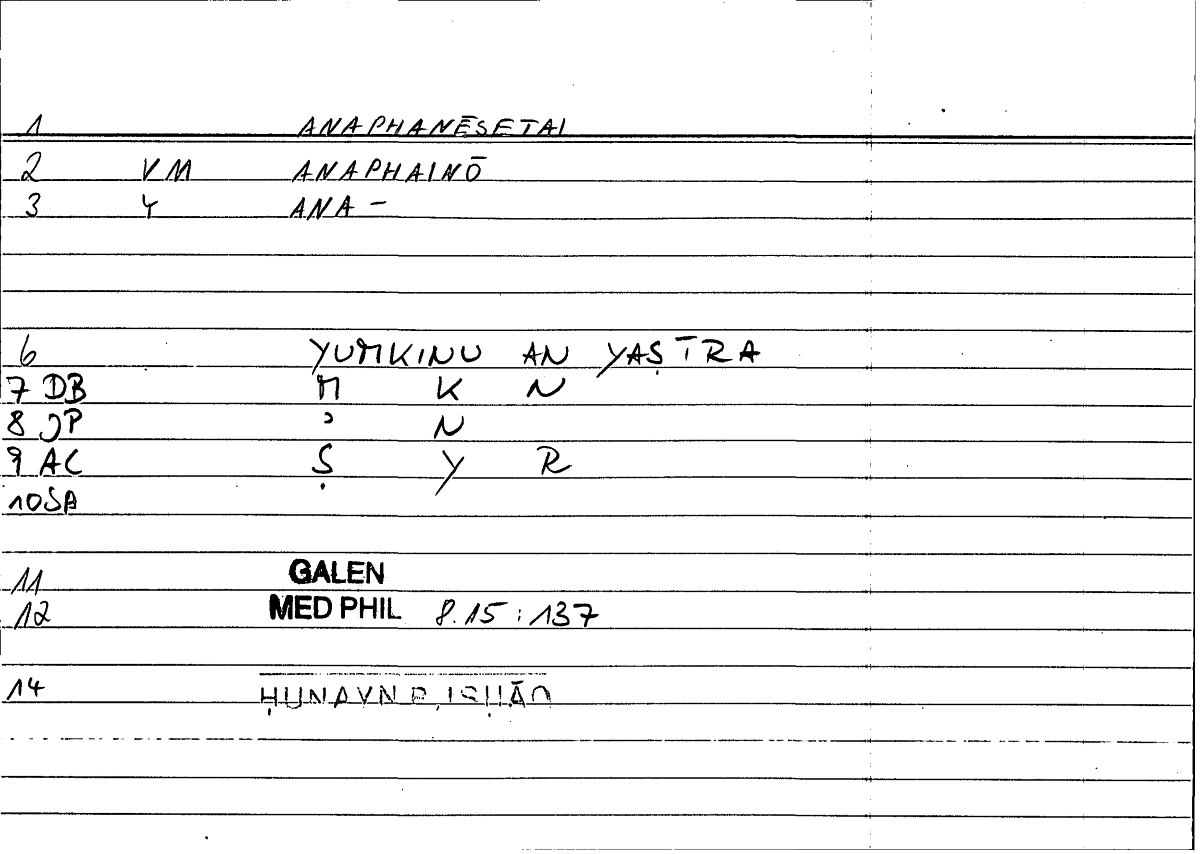 1 ANAPHANĒSETAI
2 VM ANAPHAINŌ
3 4 ANA-
6 YUMKINU AN YAṢĪRA
7 DB M K N
8 JP ʾ N
9 AC Ṣ Y R
10 SA
11 GALEN
12 MED PHIL 8.15:137
14 ḤUNAYN B. ISḤĀQ